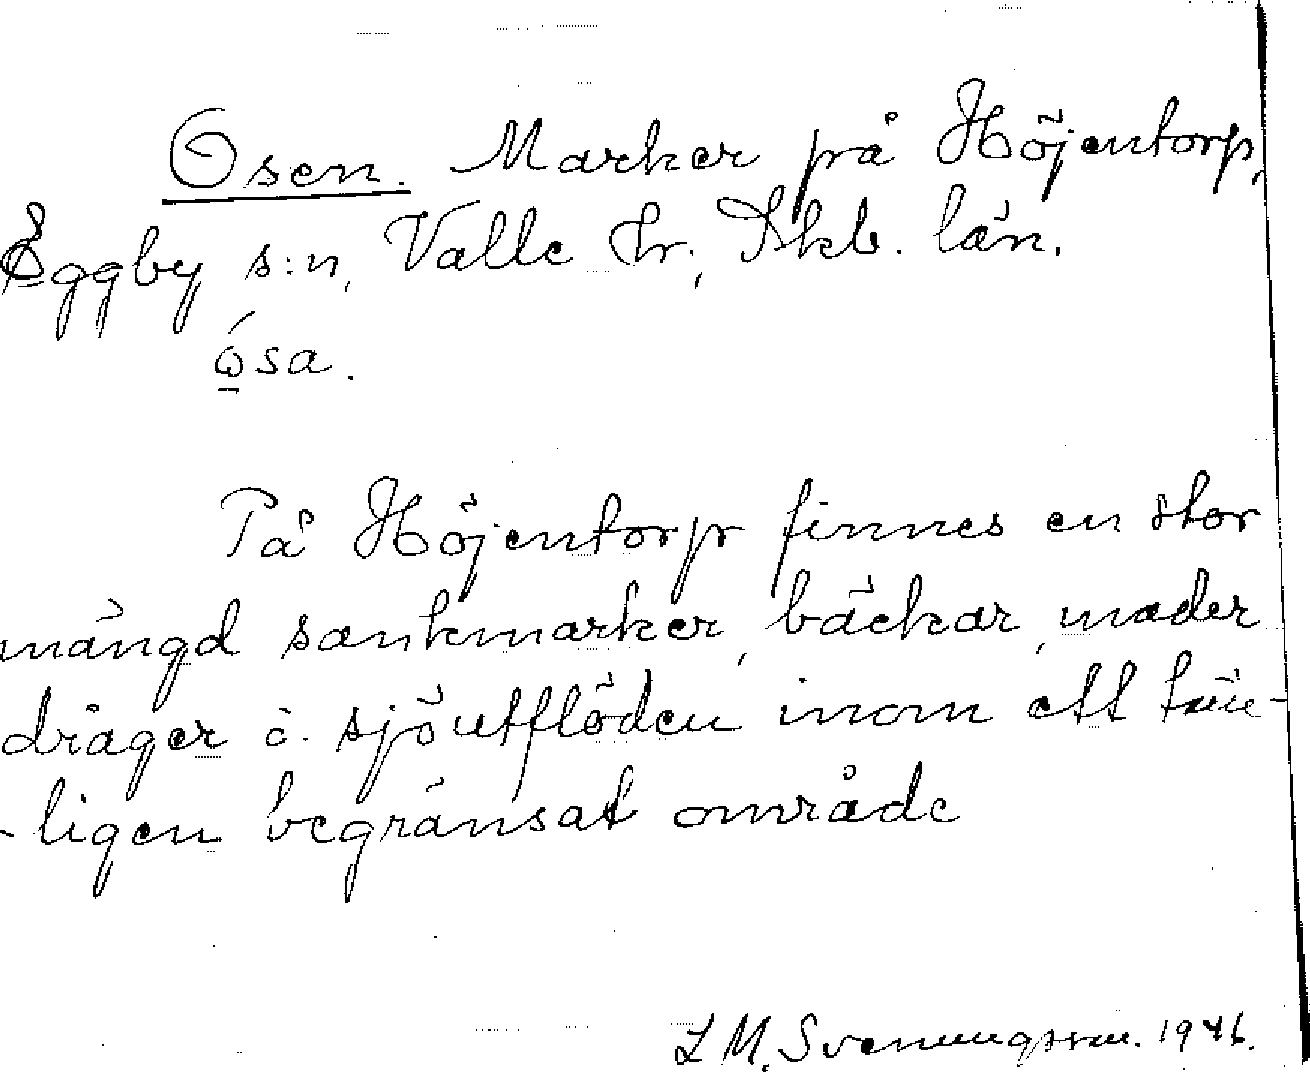 Osen. Marker på Höjentorp,
Eggby s:n, Valle hr., Skb. län.
ώsa.
På Höjentorp finnes en stor
mängd sankmarker, bäckar, mader
dråger o. sjöutflöden inom ett täm-
-ligen begränsat område
L M. Svenungsson. 1946.